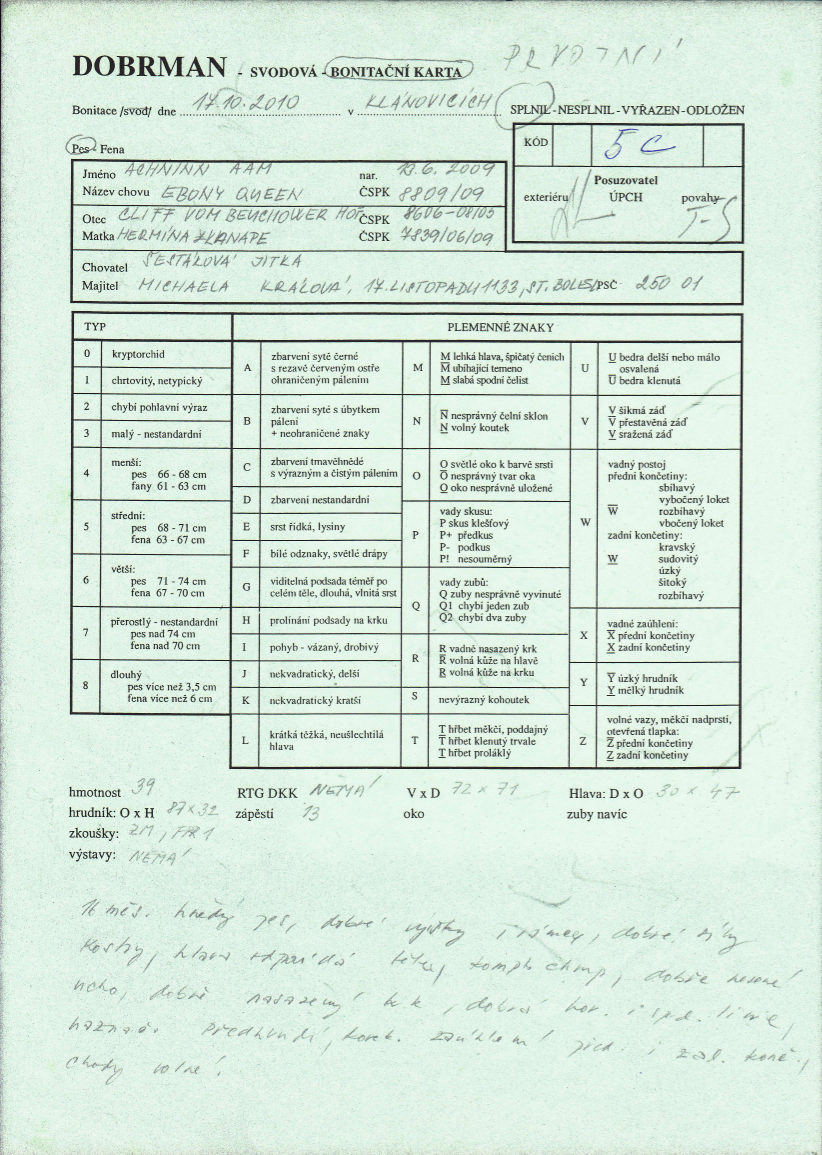 DOBRMAN - SVODOVÁ - BONITAČNÍ KARTA PRVOTNÍ
Bonitace /svod/ dne 17.10.2010 v KLÁNOVICÍCH SPLNIL - NESPLNIL - VYŘAZEN - ODLOŽEN
Pes - Fena
KÓD 5 C
Jméno ACHNINN AAM nar. 13.6. 2009
Název chovu EBONY QUEEN ČSPK 8809/09
Otec CLIFF VOM BEUCHOWER HOF ČSPK 8606-08/05
Matka HERMÍNA ZKANAPE ČSPK 7839/06/09
Posuzovatel
exteriéru ÚPCH povahy
T-S
Chovatel ŠESTÁKOVÁ JITKA
Majitel MICHAELA KRÁLOVÁ, 17.LISTOPADU 1133, ST. BOLES. PSČ 250 01
TYP
0 kryptorchid
1 chrtovitý, netypický
2 chybí pohlavní výraz
3 malý - nestandardní
4 menší:
pes 66 - 68 cm
fany 61 - 63 cm
5 střední:
pes 68 - 71 cm
fena 63 - 67 cm
6 větší:
pes 71 - 74 cm
fena 67 - 70 cm
7 přerostlý - nestandardní
pes nad 74 cm
fena nad 70 cm
8 dlouhý
pes více než 3,5 cm
fena více než 6 cm
PLEMENNE ZNAKY
A zbarvení syté černé
s rezavě červeným ostře
ohraničeným pálením
B zbarvení syté s úbytkem
pálení
+ neohraničené znaky
C zbarvení tmavěhnědé
s výrazným a čistým pálením
D zbarvení nestandardní
E srst řídká, lysiny
F bílé odznaky, světlé drápy
G viditelná podsada téměř po
celém těle, dlouhá, vlnitá srst
H prolínání podsady na krku
I pohyb - vázaný, drobivý
J nekvadratický, delší
K nekvadratický kratší
L krátká těžká, neušlechtilá
hlava
M M lehká hlava, špičatý čenich
M ubíhající temeno
M slabá spodní čelist
N N nesprávný čelní sklon
N volný koutek
O O světlé oko k barvě srsti
O nesprávný tvar oka
O oko nesprávně uložené
P vady skusu:
P skus klešťový
P+ předkus
P- podkus
P! nesouměrný
Q vady zubů:
Q zuby nesprávně vyvinuté
Q1 chybí jeden zub
Q2 chybí dva zuby
R R vadně nasazený krk
R volná kůže na hlavě
R volná kůže na krku
S nevýrazný kohoutek
T T hřbet měkčí, poddajný
T hřbet klenutý trvale
T hřbet proláklý
U U bedra delší nebo málo
osvalená
U bedra klenutá
V V šikmá záď
V přestavěná záď
V sražená záď
W vadný postoj
přední končetiny:
sbíhavý
vybočený loket
W rozbíhavý
vbočený loket
zadní končetiny:
kravský
W sudovitý
úzký
šitoký
rozbíhavý
X vadné zaúhlení:
X přední končetiny
X zadní končetiny
Y Y úzký hrudník
Y mělký hrudník
Z volné vazy, měkčí nadprstí,
otevřená tlapka:
Z přední končetiny
Z zadní končetiny
hmotnost 39 RTG DKK NEMÁ V x D 72 x 71 Hlava: D x O 30 x 47
hrudník: O x H 87x32 zápěstí 13 oko zuby navíc
zkoušky: ZM, FPR 1
výstavy: NEMÁ
16 měs. hnědý pes, dobré výšky i rámce, dobré síly
kostry, hlava odpovídá tělu, kompl. chrup, dobře nesené
ucho, dobře nasazený krk, dobrá hor. i spd. linie,
naznač. předhrudí, korek. zaúhlení před. i zad. konč.,
chody volné.